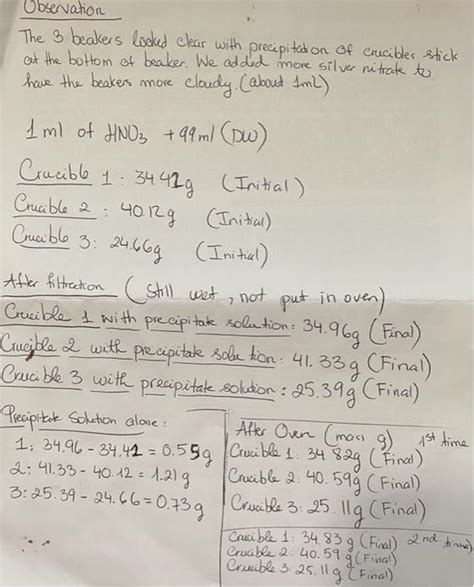 Observation
The 3 beakers looked clear with precipitation of crucibles stick
at the bottom of beaker. We added more silver nitrate to
have the beakers more cloudy. (about 1ml)
1 ml of HNO3 + 99 ml (DW)
Crucible 1 : 34.42g (Initial)
Crucible 2 : 40.12g (Initial)
Crucible 3: 24.66g (Initial)
After filtration (Still wet, not put in oven)
Crucible 1 with precipitate solution: 34.96g (Final)
Crucible 2 with precipitate solution: 41.33g (Final)
Crucible 3 with precipitate solution : 25.39g (Final)
Precipitate Solution alone:
1: 34.96 - 34.42 = 0.55g
2: 41.33 - 40.12 = 1.21g
3: 25.39 - 24.66 = 0.73g
After Oven (mass g) 1st time
Crucible 1: 34 82g (Final)
Crucible 2: 40.59g (Final)
Crucible 3: 25.11g (Final)
Crucible 1: 34.83 g (Final) 2nd time)
Crucible 2: 40.59 g (Final)
Crucible 3: 25.11 g (Final)